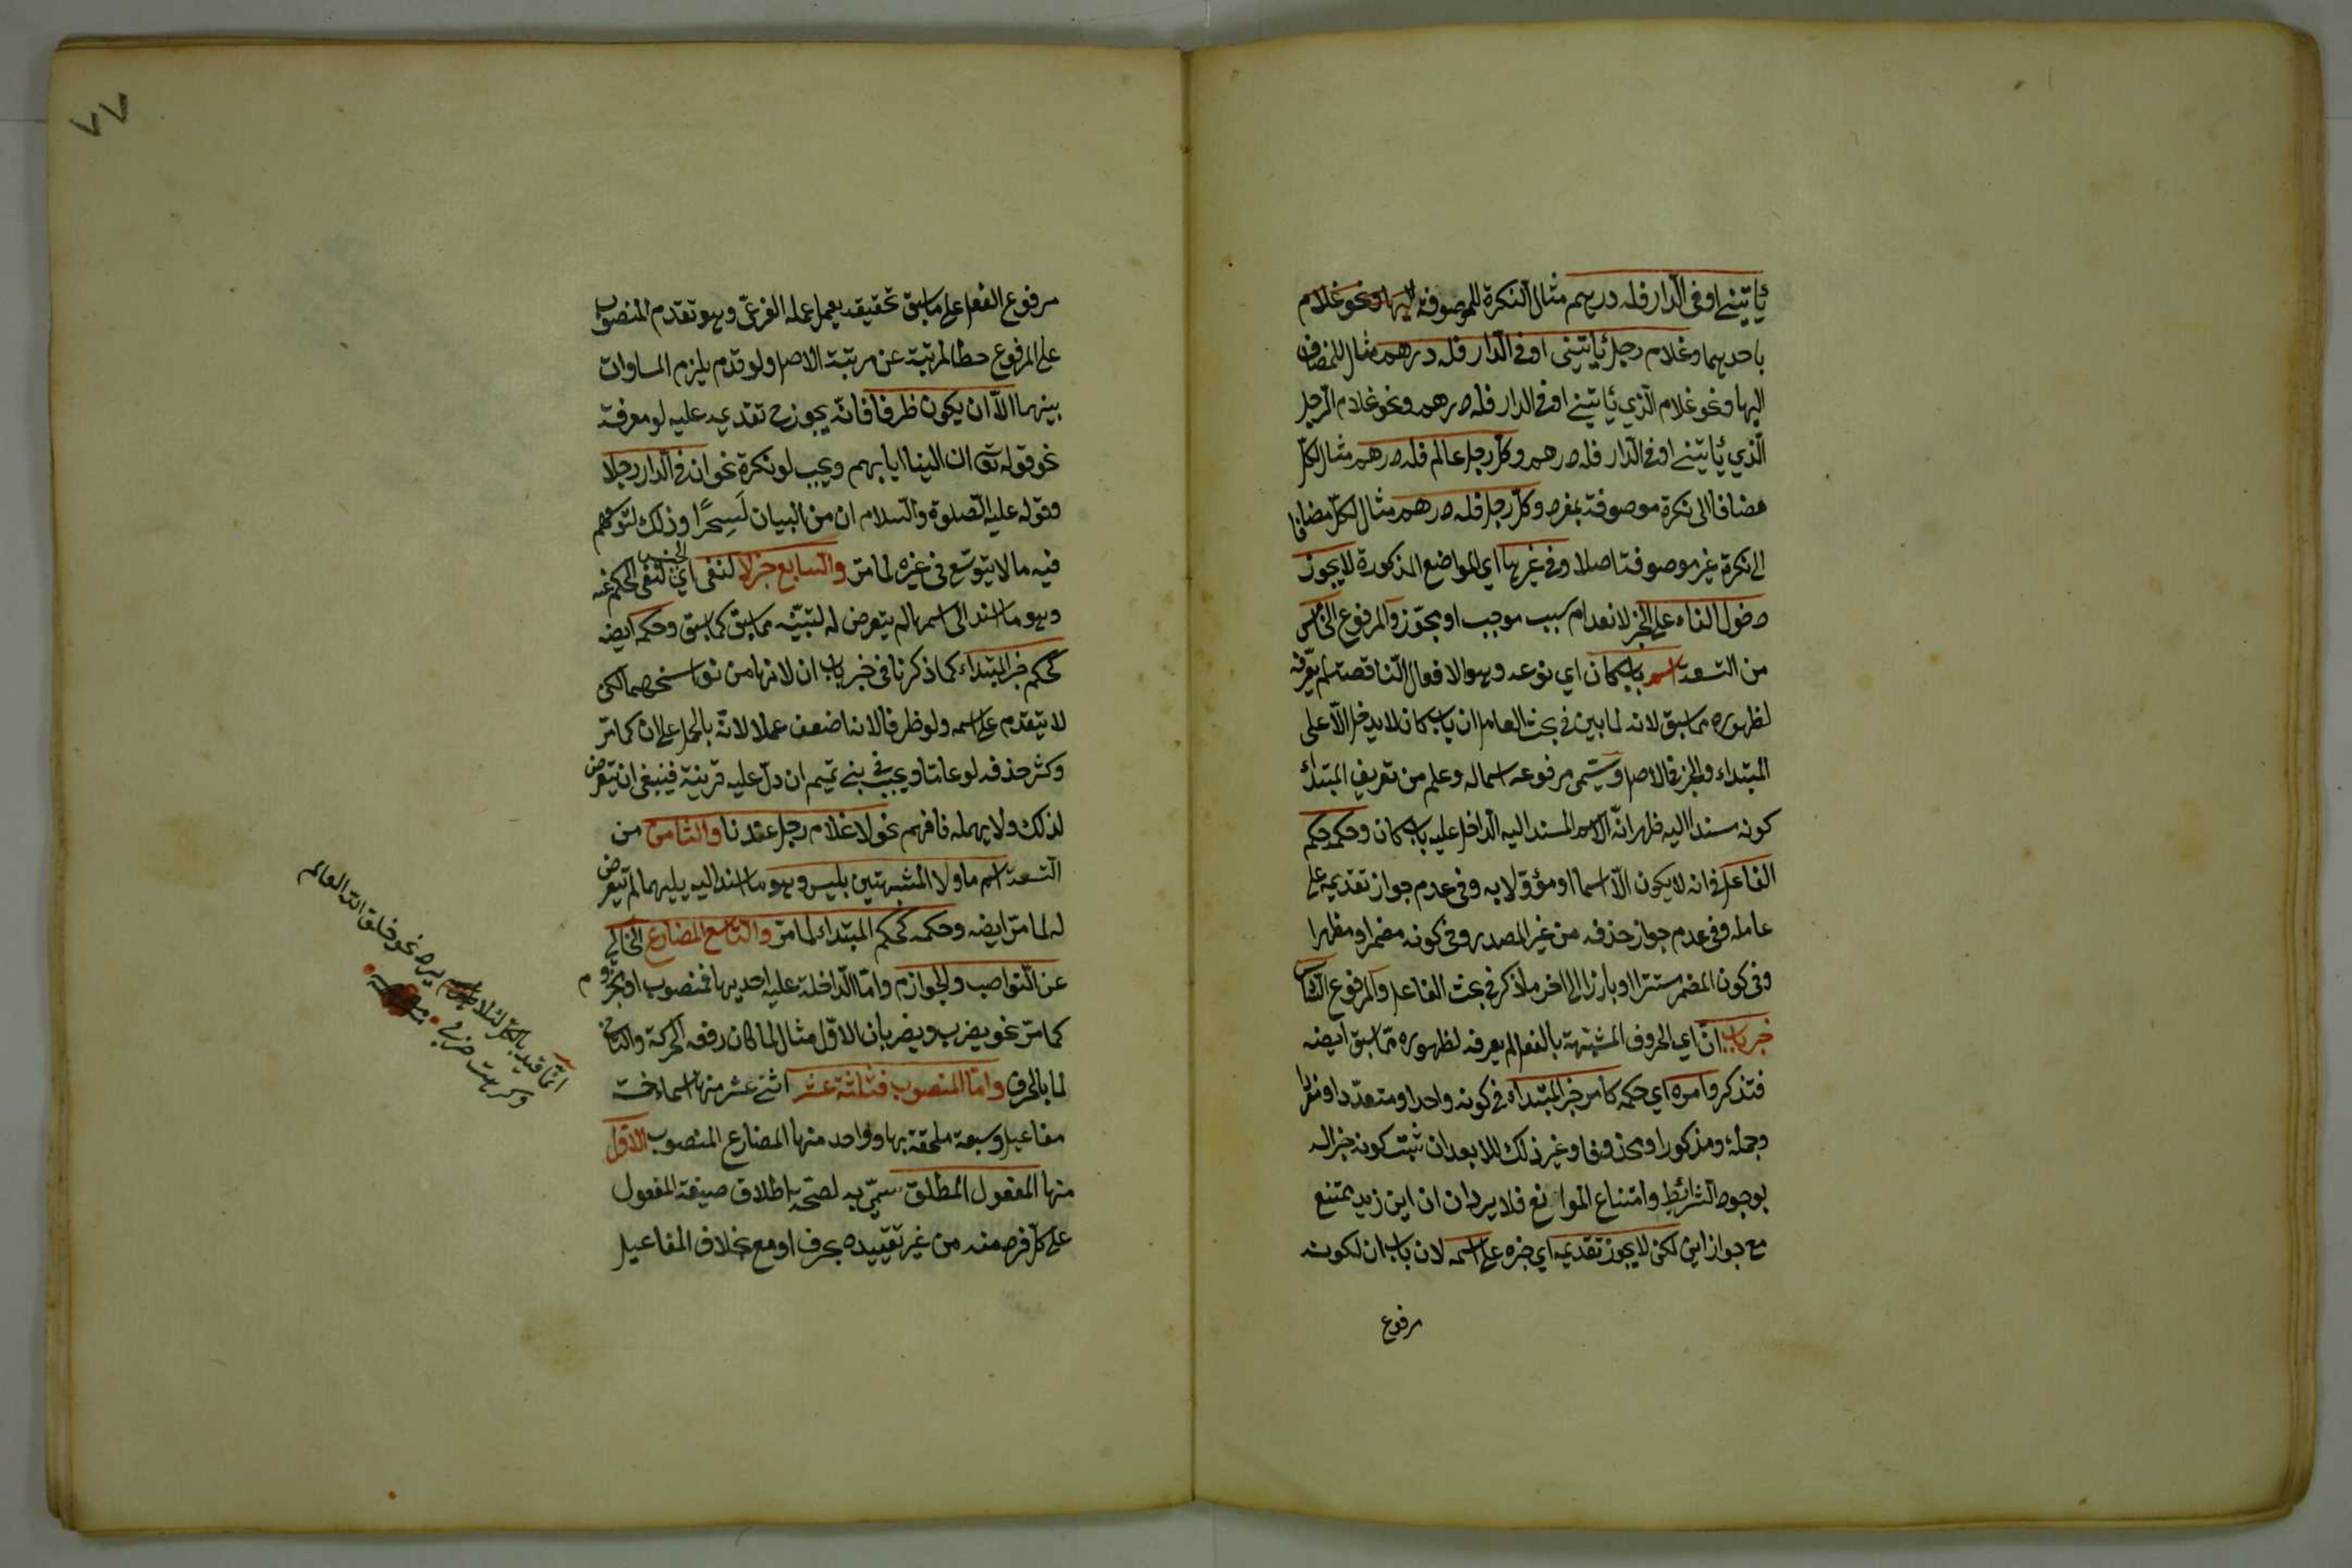 يأتيني او في الدار فله درهم مثال النكرة الموصوفة اليها ونحو غلام
باحديهما وغلام رجل يأتيني او في الدار فله درهم مثال للمضاف
اليها ونحو غلام الذي يأتيني او في الدار فله درهم ونحو غلام الرجل
الذي يأتيني او في الدار فله درهم وكل رجل عالم فله درهم مثال لكل
مضافا الى نكرة موصوفة بمفرد وكل رجل فله درهم مثال لكل مضافا
الى نكرة غير موصوفة اصلا وفي غيرها اي المواضع المذكورة لا يجوز
دخول الفاء على الخبر لانعدام سبب موجب او مجوّز والمرفوع الخامس
من التسعة اسم باب كان اي نوعه وهو الافعال الناقصة لم يعرفه
لظهوره مما سبق لانه لما بين في بحث العامل ان باب كان لا يدخل الا على
المبتداء والخبر في الاصل وسمّى مرفوعه اسما له وعلم من تعريف المبتداء
كونه مسندا اليه ظهر انه الاسم المسند اليه الداخل عليه باب كان وحكمه حكم
الفاعل في انه لا يكون الا اسما او مؤوّلا به وفي عدم جواز تقديمه على
عامله وفي عدم جواز حذفه من غير المصدر وفي كونه مضمرا ومظهرا
وفي كون المضمر مستترا او بارزا الى اخر ما ذكر في بحث الفاعل والمرفوع السادس
خبر باب انّ اي الحروف المشبهة بالفعل لم يعرفه لظهوره مما سبق ايضه
فتذكر وامره اي حكمه كامر خبر المبتداء في كونه واحدا ومتعددا ومفردا
وجملة ومذكورا ومحذوفا وغير ذلك لا بعد ان ثبت كونه خبرا له
بوجود الشرائط وامتناع الموانع فلا يرد ان ان اين زيد يمتنع
مع جواز اين لكن لا يجوز تقديمه اي خبره على اسمه لان باب ان لكونه
مرفوع
٧٧
مرفوع الفعل على ما سبق تحقيقه يعمل عمله الفرعي وهو تقدم المنصوب
على المرفوع حطا لمرتبة عن مرتبة الاصل ولو قدم يلزم المساوات
بينهما الا ان يكون ظرفا فانه يجوز ح تقديمه عليه لو معرفة
نحو قوله تع ان الينا ايابهم ويجب لو نكرة نحو ان في الدار رجلا
وقوله عليه الصلوة والسلام ان من البيان لسحرًا وذلك لتوسعهم
فيه ما لا يتوسع في غيره لما مر والسابع خبر لا لنفي الجنس اي لنفي الحكم عنه
وهو ما اسند الى اسمها لم يتعرض له لتبيّنه مما سبق كما سبق وحكمه ايضه
كحكم خبر المبتداء كما ذكرنا في خبر باب ان لانها من نواسخهما لكن
لا يتقدم على اسمه ولو ظرفا لانها ضعف عملا لانه بالحمل على ان كما مر
وكثر حذفه لو عاما ويجب في بني تميم ان دل عليه قرينة فينبغي ان يتعرض
لذلك ولا يهمله فافهم نحو لا غلام رجل عندنا والثامن من
التسعة اسم ما ولا المشبهتين بليس وهو ما اسند اليه يليهما لم يتعرض
له لما مر ايضه وحكمه كحكم المبتداء لما مر والتاسع المضارع الخالي
عن النواصب والجوازم واما الداخلة عليه احديها فمنصوب او مجزوم
كما مر نحو يضرب ويضربان الاول مثال لما كان رفعه الحركة والثاني
لما بالحرف واما المنصوب فثلثة عشر اثني عشر منها اسماء خمسة
مفاعيل وسبعة ملحقة بها وواحد منها المضارع المنصوب الاول
منها المفعول المطلق سمّي به لصحة اطلاق صيغة المفعول
على كل فرد منه من غير تقييده بحرف او مع بخلاف المفاعيل
انما قيد بالكل لئلا يرد نحو خلق الله العالم
وكرهت ضربي